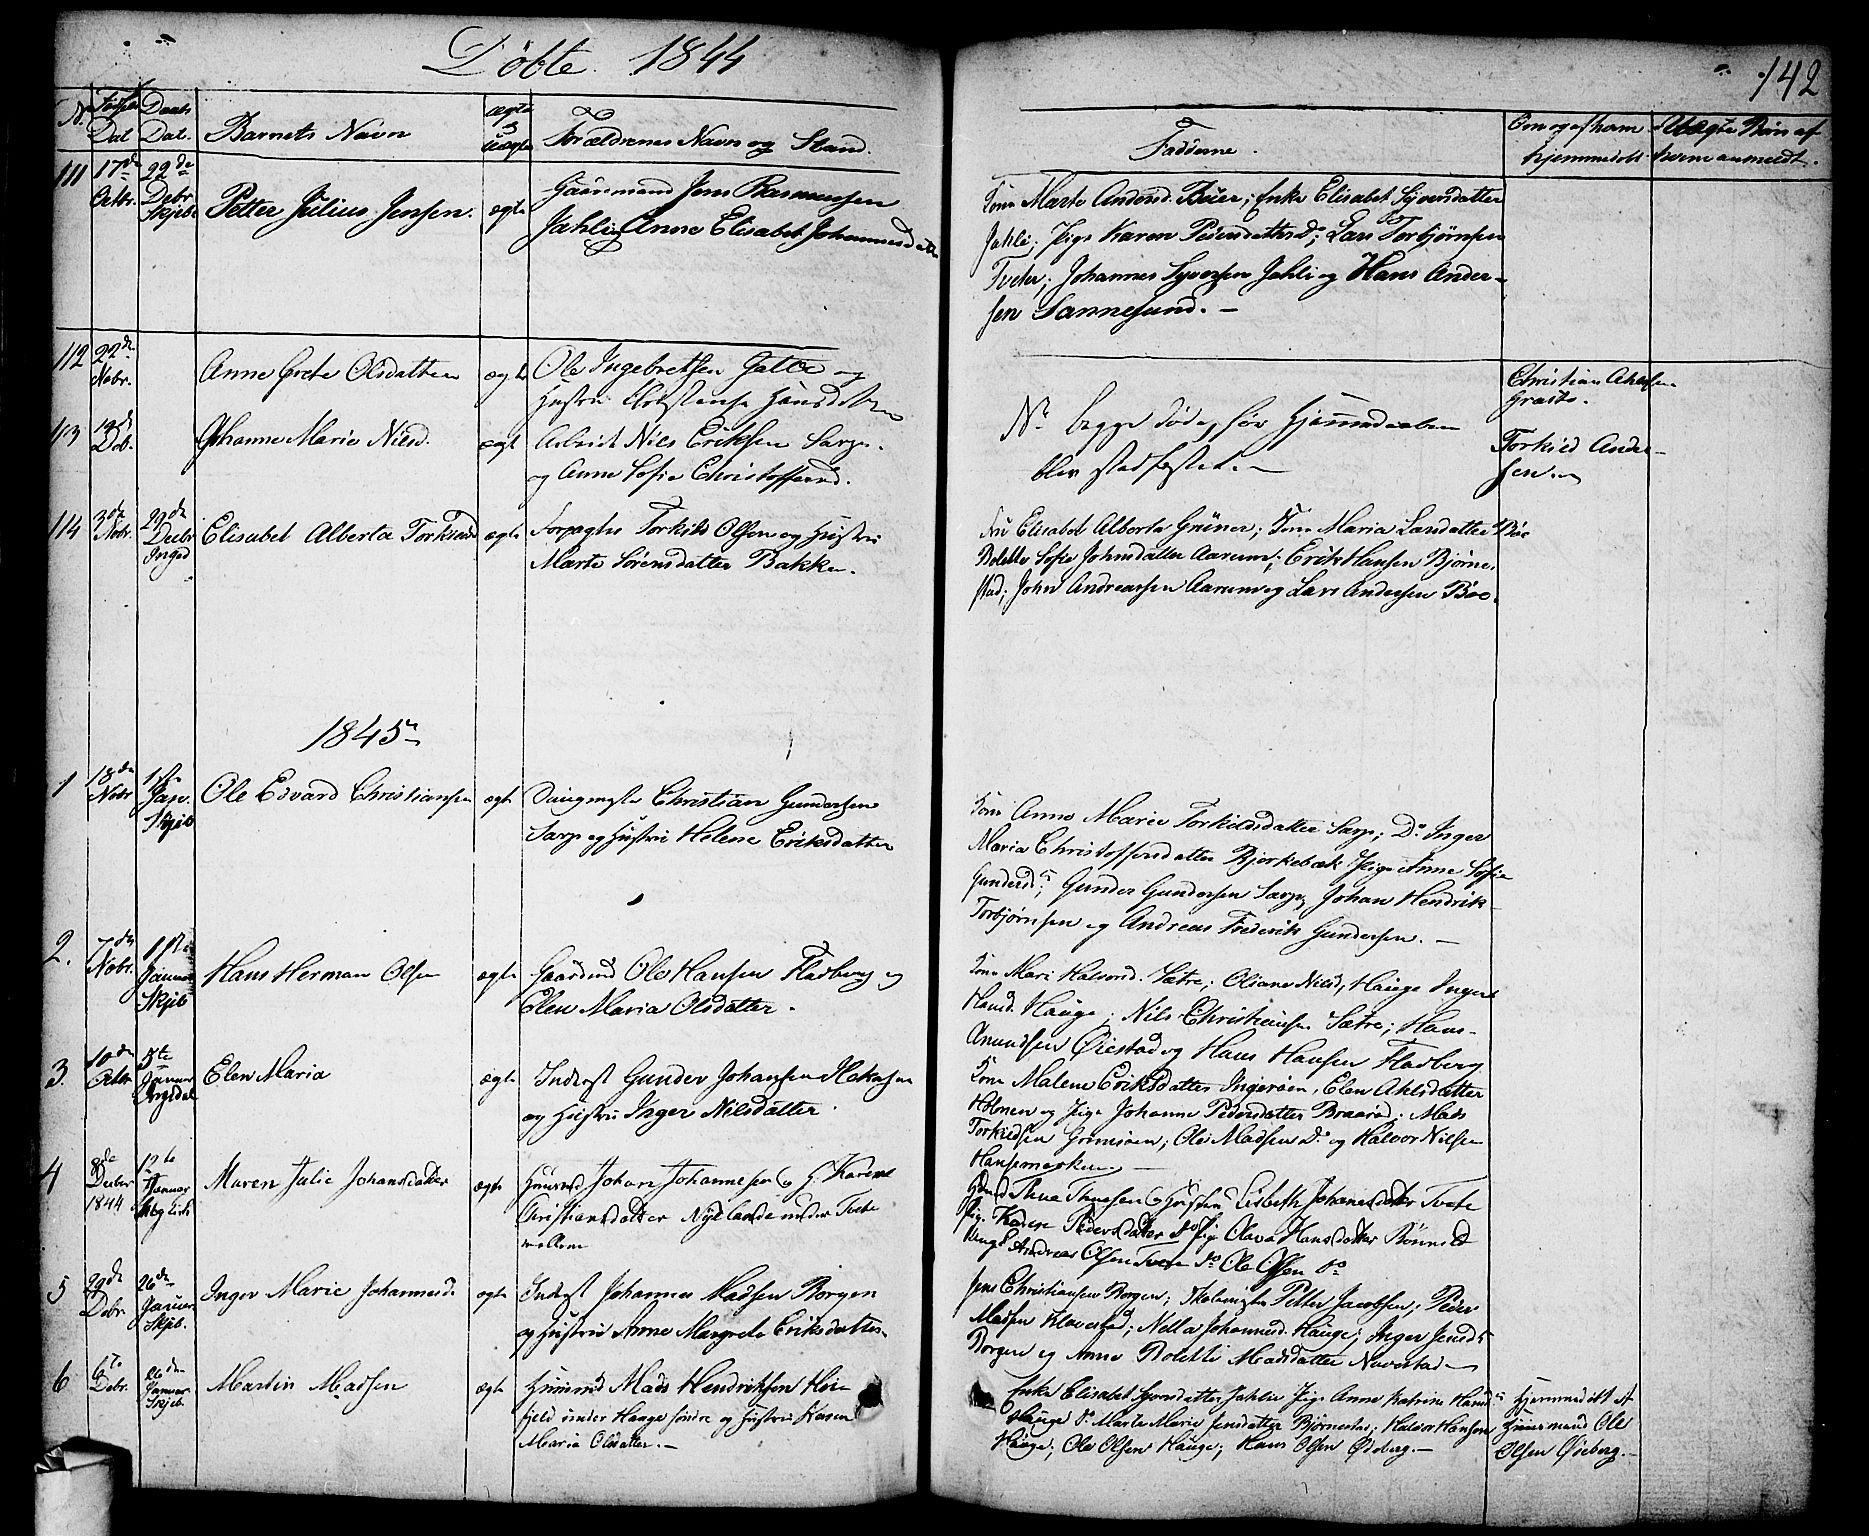 Döbte 1844
142
N.
Fødsels
Dat
Daabs
Dat.
Barnets Navn
ægte
uægte
Forældrenes Navn og Stand.
Faddere.
Om og af hvem
hjemmedøbt
Uægte Børn af
hvem anmeldt.
111
17de
Octbr.
22de
Debr
Skjeb
Petter Julius Jensen.
ægte
Gaardmand Jens Rasmussen
Jahli og Anne Elisabet Johannesdatter
Kone Marte Andersd. Buer; Enke Elisabet Syversdatter
Jahli; Pige Karen Pedersdatter do; Lars Torbjørnsen
Tveter; Johannes Syversen Jahli og Hans Ander-
sen Sannesund. —
112
22de
Nobr.
Anne Grete Olsdatter
ægte
Ole Ingebretsen Galtø og
Hustru Hansdatter
Christian
113
19d
Deb.
Johanne Marie Nilsd.
ægt
Arbeid Nils Eriksen Sarps.
og Anne Sofie Christoffersd.
N. begge døde før Hjemmedaaben
blev stadfæstet. —
Torkild Ander-
sen
114
3de
Nobr.
29de
Debr
Inged
Elisabet Alberta Torkildsd
ægte
Forpagter Torkild Olsen og Hustru
Marte Sørensdatter Bakke.
Fru Elisabet Alberta Grüner; Kone Maria Larsdatter Böe
Bolette Sofie Johnsdatter Aarum; Erik Hansen Bjørne-
stad; John Andreassen Aarum og Lars Andersen Böe.
1845
1
18de
Nobr
1ste
Jan.
Skjeb
Ole Edvard Christiansen
ægte
Christian Gundersen
Sarp og Hustru Helene Eriksdatter
Kone Anne Marie Torkildsdatter Sarp; Do Inger
Maria Christoffersdatter Bjerkebæk Pige Anne Sofie
Gundersd; Gunder Gundersen Sarp, Johan Hendrik
Torbjørnsen og Andreas Frederik Gundersen. —
2.
7de
Nobr.
1ste
Januar
Skjeb
Hans Herman Olsen
ægte
Gaardmd Ole Hansen Fladberg og
Elen Maria Olsdatter.
Kone Mari Halvorsd. Sætre; Oliane Nilsd, Hauge Inger
Hansd. Hauge; Nils Christiansen Sætre; Hans
Amundsen Øiestad og Hans Hansen Fladberg
3.
10de
Octbr
5te
Januar
Ingedal
Elen Maria
ægte
Inderst Gunder Johansen
og Hustru Inger Nilsdatter.
Kone Malene Eriksdatter Ingerøen, Elen
Holmen og Pige Johanne Pedersdatter Braarød; Mads
Torkildsen Grimsøen; Ole Madsen Do og Halvor Nilsen
Hansemarken —
4
8de
Debr
1844
12te
Januar
Maren Julie Johansdatter
ægte
Huusmd Johan Johannesen og H. Karen
Christiansdatter Nyelænde under Tvete
mellem
Gmd Thue Thuesen og Hustru Lisbeth Johanesdatter Tvete
Pig. Karen Pedersdatter do Pige Olava Hansdatter Rönnild
Ungk Andreas Olsen Tvete do Ole Olsen do
5
29de
Debr.
26de
Januar
Skjeb.
Inger Marie Johannesd
ægte
Inderst Johannes Madsen Borgen
og Hustru Anne Margrete Eriksdatter.
Jens Christiansen Borgen; Skolemester Petter Jacobsen; Peder
Madsen Klavestad; Nella Johannesd. Hauge; Inger Jensd
Borgen og Anne Bolette Madsdatter Navestad —
6
6te
Debr.
26de
Januar
Skjeb.
Martin Madsen
ægte
Huusmd Mads Hendriksen Høi-
fjeld under Hauge søndre og Hustru Karen
Maria Olsdatter. —
Enke Elisabet Syversdatter Jahlie Pige Anne Katrine Hansd
Hauge do Marte Marie Jensdatter Bjørnestad; Halvor Hansen
Hauge; Ole Olsen Hauge; Hans Olsen Ødeberg. —
Hjemmedøbt af
Huusmand Ole
Olsen Ødeberg. —